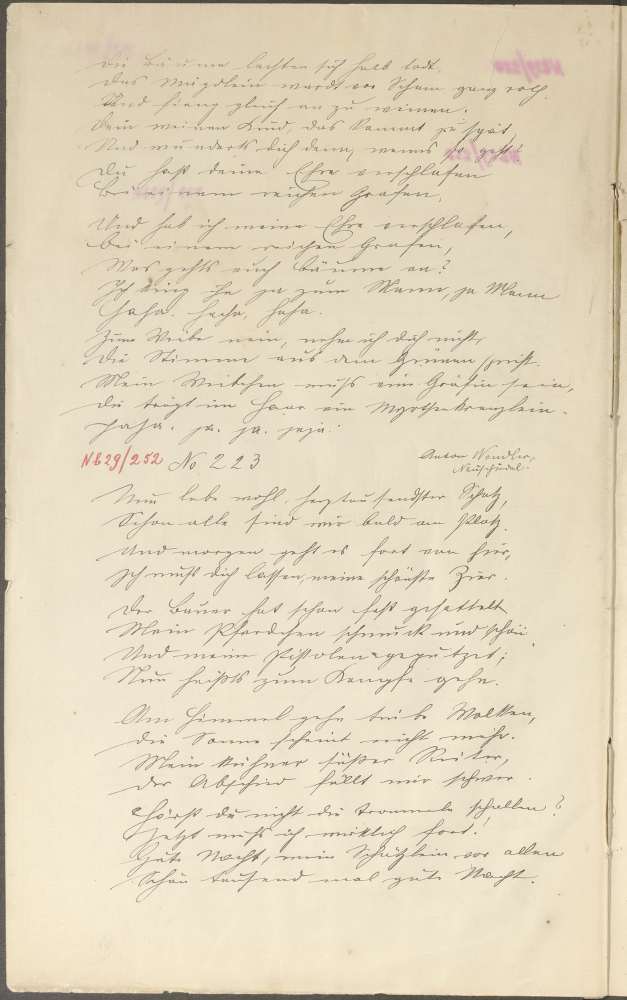 Die Bäume lachten sich halb todt.
Das Mägdlein wardt vor Scham ganz roth
Und fieng gleich an zu weinen.
Dein weinen Kind, das kommt zu spät,
Und wunderts dich denn, wenns so geht?
Du hast deine Ehre verschlafen
Bei einem reichen Grafen.
Und hab ich meine Ehre verschlafen,
Bei einem reichen Grafen,
Was gehts euch Bäume an?
Ich krieg ihn ja zum Mann, ja Mann
Haha. haha, haha.
Zum Weibe nein, nehm ich dich nicht,
Die Stimme aus dem Grünen spricht.
Mein Weibchen muß eine Gräfin sein,
Die trägt im Haar ein Myrthenkrenzlein.
Haha. ja. ja. jaja.
N629/252 No 223
Anton Wendler,
Neustudel.
Nun lebe wohl, herztausendster Schatz,
Schon alle sind wir bald am Platz
Und morgen geht es fort von hier,
Ich muß dich lassen, meine schönste Zier.
Der Bauer hat schon fest gesattelt
Mein Pferdchen schmuck und schön
Und meine Pistolen geputzet;
Nun heißts zum Kampfe gehn.
Am Himmel gehn trübe Wolken,
Die Sonne scheint nicht mehr.
Mein kühner süßer Reiter,
Der Abschied fällt mir schwer.
Hörst du nicht die Trommeln schallen?
Jetzt muß ich wirklich fort.
Gute Nacht, mein Schätzlein vor allen
Schön tausend mal gute Nacht.